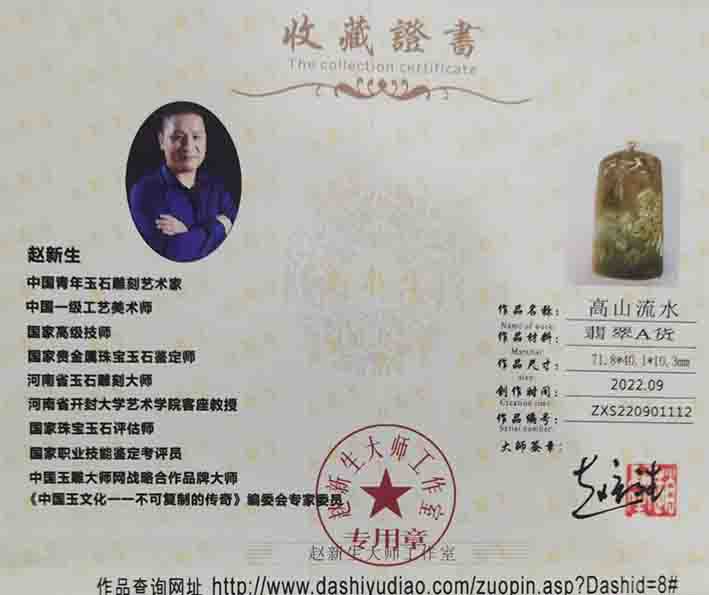 收藏證書
The collection certificate
赵新生
中国青年玉石雕刻艺术家
中国一级工艺美术师
国家高级技师
国家贵金属珠宝玉石鉴定师
河南省玉石雕刻大师
河南省开封大学艺术学院客座教授
国家珠宝玉石评估师
国家职业技能鉴定考评员
中国玉雕大师网战略合作品牌大师
《中国玉文化一一不可复制的传奇》编委会专家委员
作品名称: 高山流水
Name of work:
作品材料: 翡翠A货
Material:
作品尺寸: 71.8*40.1*10.3mm
size:
创作时间: 2022.09
Creation time:
作品编号: ZXS220901112
Serial number:
大师签章:
赵新生大师工作室
专用章
赵新生大师工作室
作品查询网址 http://www.dashiyudiao.com/zuopin.asp?Dashid=8#